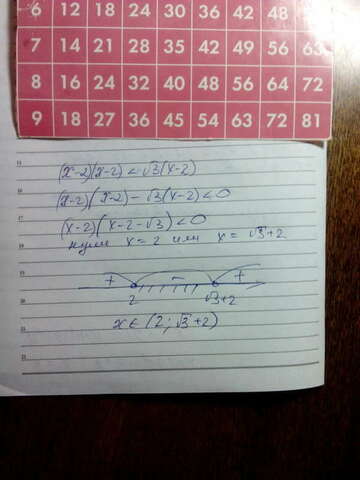 6 12 18 24 30 36 42 48
7 14 21 28 35 42 49 56 63
8 16 24 32 40 48 56 64 72
9 18 27 36 45 54 63 72 81
15
(x-2)(x-2) < √3(x-2)
16
(x-2)(x-2) - √3(x-2) < 0
17
(x-2)(x-2-√3) < 0
18
нули x = 2 или x = √3+2
19
+ - +
20
2 √3+2
21
x ∈ (2; √3+2)
22
23